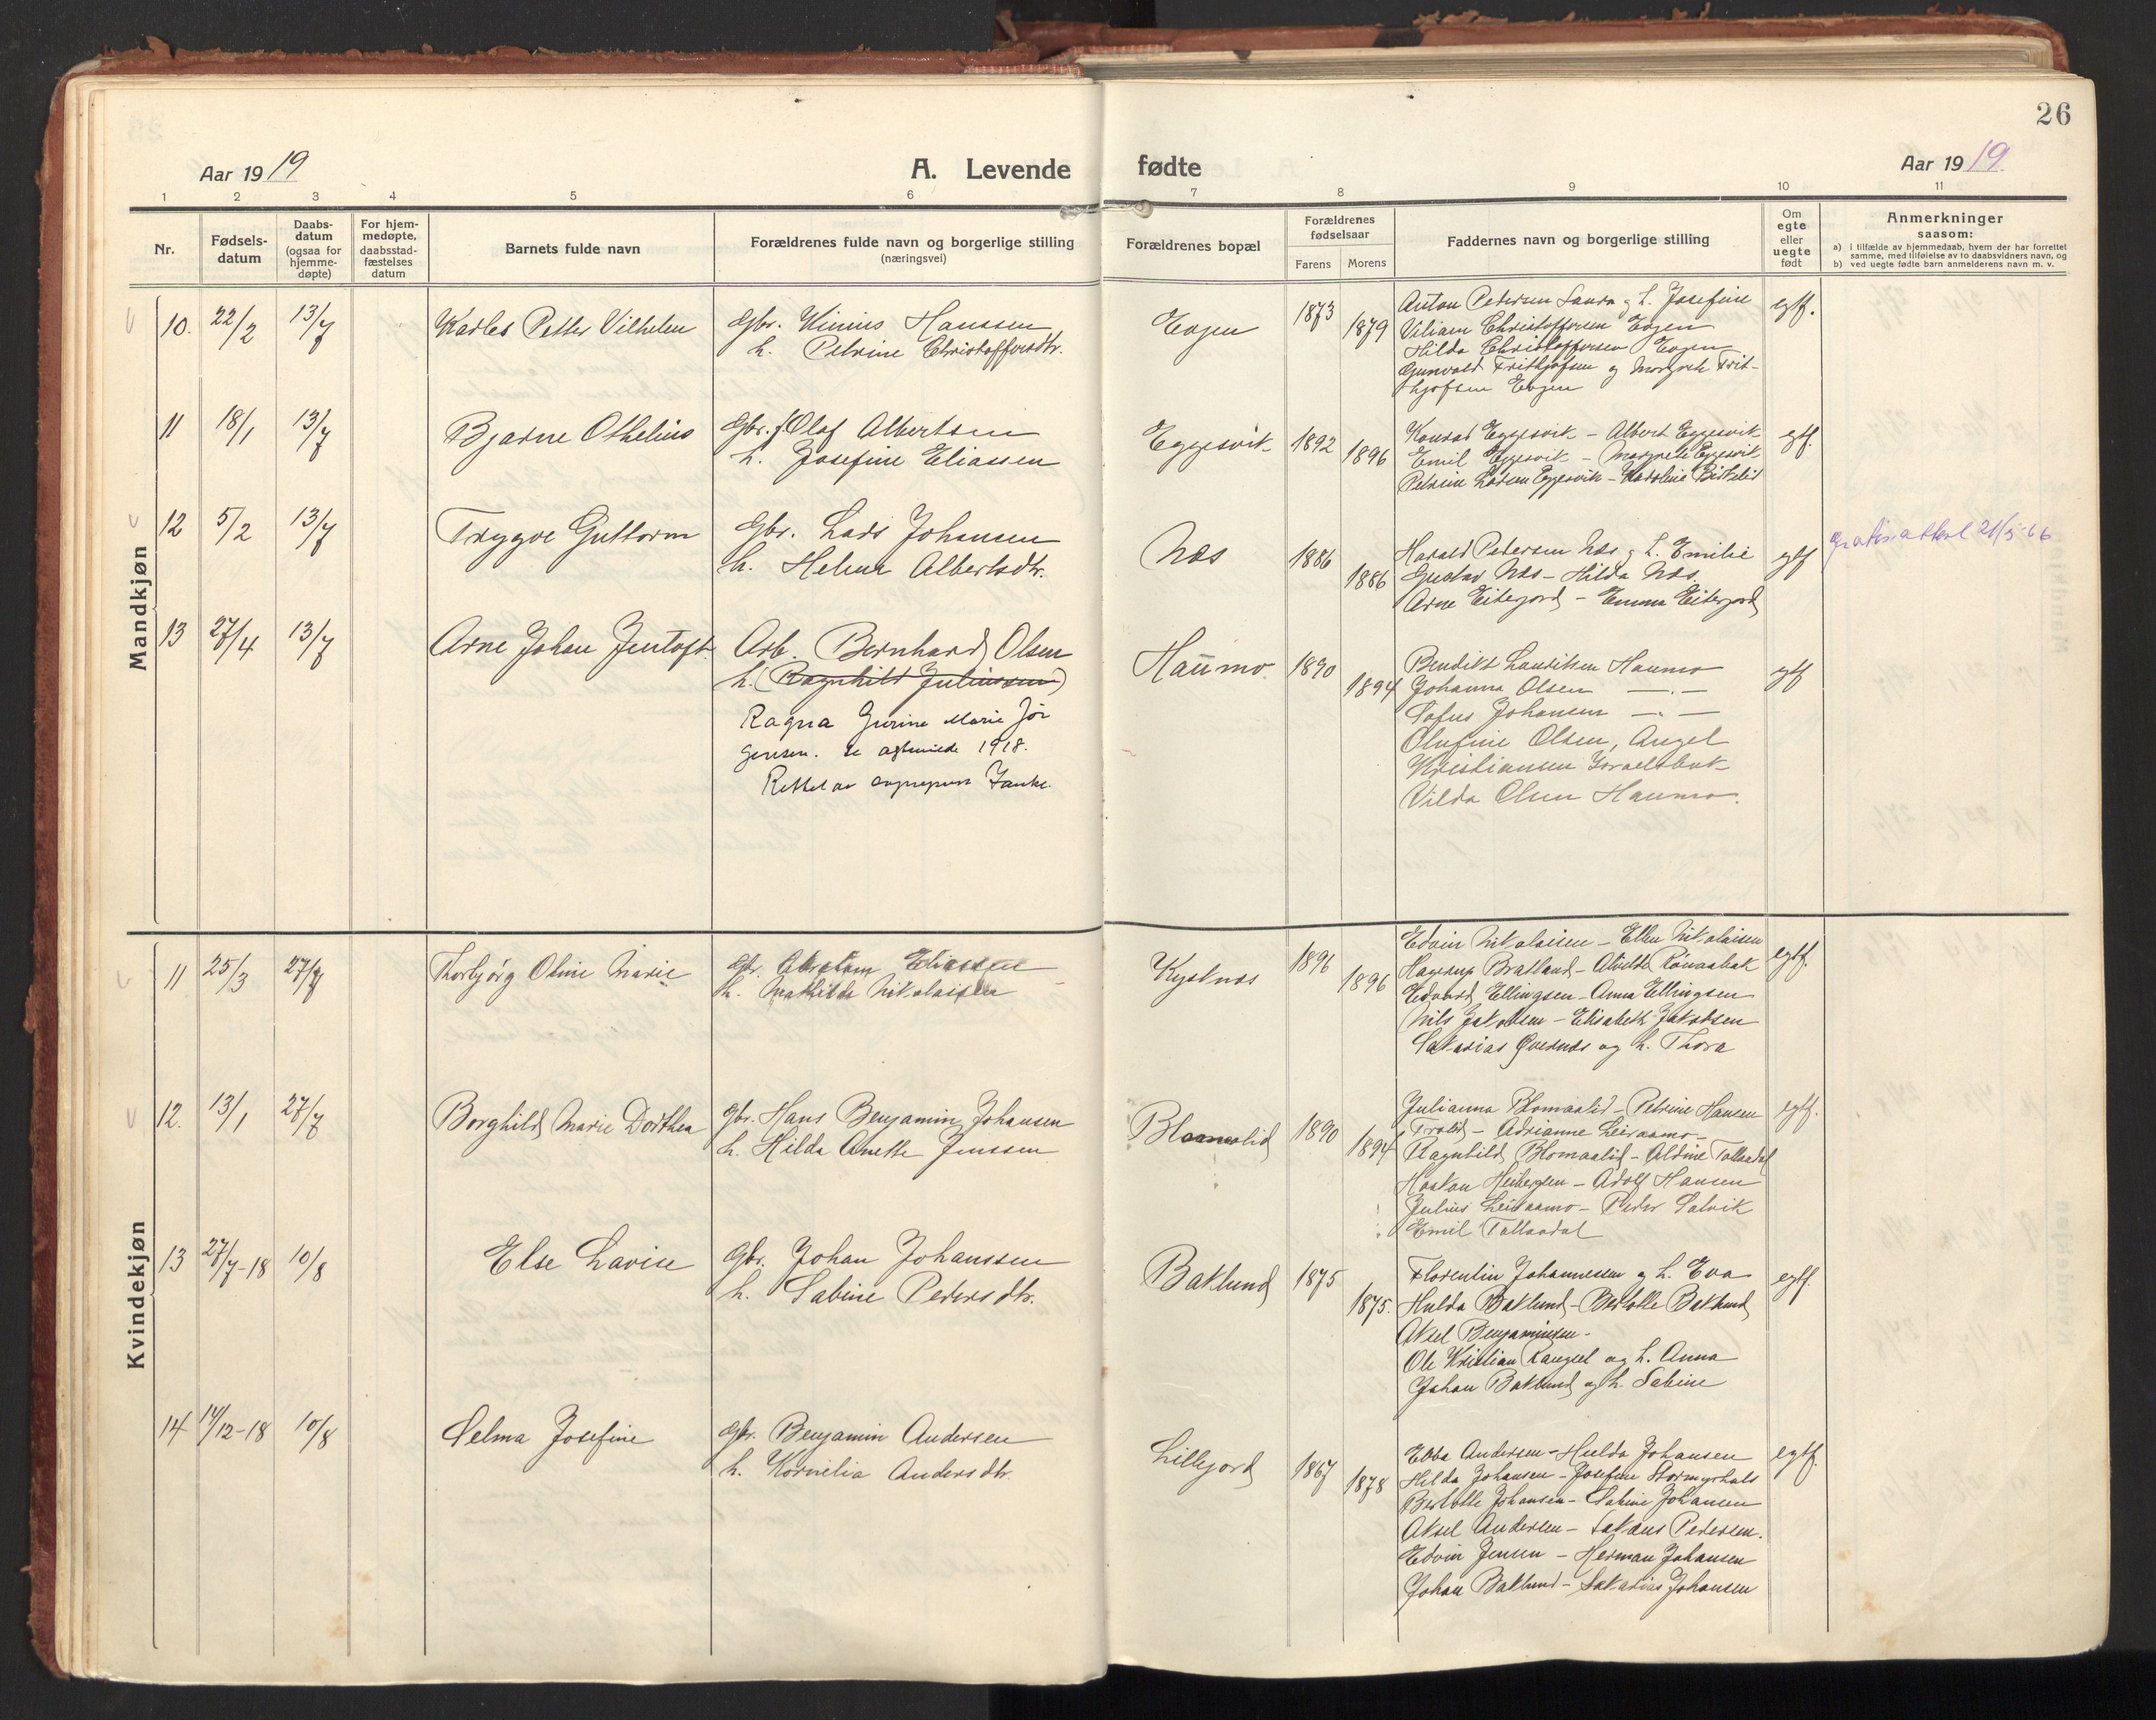 26
Aar 1919
A. Levende fødte
Aar 1919.
1 2 3 4 5 6 7 8 9 10 11
Nr.
Fødsels-
datum
Daabs-
datum
(ogsaa for
hjemme-
døpte)
For hjem-
medøpte,
daabsstad-
fæstelses
datum
Barnets fulde navn
Forældrenes fulde navn og borgerlige stilling
(næringsvei)
Forældrenes bopæl
Forældrenes
fødselsaar
Farens Morens
Faddernes navn og borgerlige stilling
Om
egte
eller
uegte
født
Anmerkninger
saasom:
a) i tilfælde av hjemmedaab, hvem der har forrettet
samme, med tilføielse av to daabsvidners navn, og
b) ved uegte fødte barn anmelderens navn m. v.
Mandkjøn
10. 22/2 13/7 Karles Petter Vilhelm
Gbr. Hanssen
h. Petrine Christoffersdtr.
Evjen 1873 1879
Anton Petersen Sandra g h. Josefine
Viliam Christoffersen Evjen
Hilda Christoffersen Evjen
Gunvald Frithjofsen og Margrete Frit-
hjofsen Evjen
egtf.
11 18/1 13/7 Bjarne Othelius
Gbr. f. Olaf Albertsen
h. Josefine Eliassen
Eggesvik 1892 1896
Konrad Eggesvik - Albert Eggesvik
Emil Eggesvik - Margrete Eggesvik
Petrine Larsen Eggesvik - Karoline Birkelid
egtf.
12 5/2 13/7 Trygve Guttorm
Gbr. Lars Johansen
h. Helene Albertsdtr.
Næs 1886 1886
Harald Petersen Næs g h. Emilie
Gustav Næs - Hilda Næs.
Arne Eiterjord - Emma Eiterjord
egtf
gratisattest 21/5-66
13 27/4 13/7 Arne Johan Jentoft.
Arb. Bernhard Olsen
h. (Ragnhild Juliussen)
Ragna Gurine Marie Jør
gensen. se egteviede 1918.
Rettet av sogneprest
Haumo. 1890 1894
Bendikt Lauritsen Haumo
Johanna Olsen —.—
Sofus Johansen —.—
Olufine Olsen, Angel
Kristiansen Israelsbak
Vilda Olsen Haumo.
egtf
Kvindekjøn
11 25/3 27/7 Thorbjørg Oline Marie
Gbr. Abraham Eliassen
h. Mathilde Nikolaisen
Kystnes 1896 1896
Edvin Nikolaisen - Ellen Nikolaisen
Hagerup Bratland - Alvilde
Edvard Ellingsen - Anna Ellingsen
Nils Jakobsen - Elisabeth Jakobsen
Sakarias Øvernes og h. Thora
egtf.
12. 13/1 27/7 Borghild Marie Dorthea
Gbr. Hans Benjamin Johansen
h. Hilda Anette Jenssen
1890 1894
Julianna Blomaalid - Petrine Hansen
- Adrianne Leiraamo -
Ragnhild Blomaalid - Aldine Tollaadal
Haakon Heibergsen - Adolf Hansen
Julius Leiraamo - Peder Salvik
Emil Tollaadal
egtf.
13 27/7-18 10/8 Else Lovise
Gbr. Johan Johanssen
h. Sabine Pedersdtr.
Baklund 1875 1875.
Florentin Johannessen g h. Eva
Hulda Baklund - Berlotte Baklund
Aksel Benjaminsen -
Ole Kristian Kangsel og h. Anna
Johan Baklund og h. Sabine
egtf.
14 14/12-18 10/8 Selma Josefine
Gbr. Benjamin Andersen
h. Kornelia Andersdtr.
Lillejord 1867 1878
Ebba Andersen - Hulda Johansen
Hilda Johansen - Josefine Stormyrhals
Berlotte Johansen - Sabine Johansen
Aksel Andersen - Pedersen.
Edvin Jensen - Herman Johansen
Johan Baklund - Sakarias Johansen
egtf.